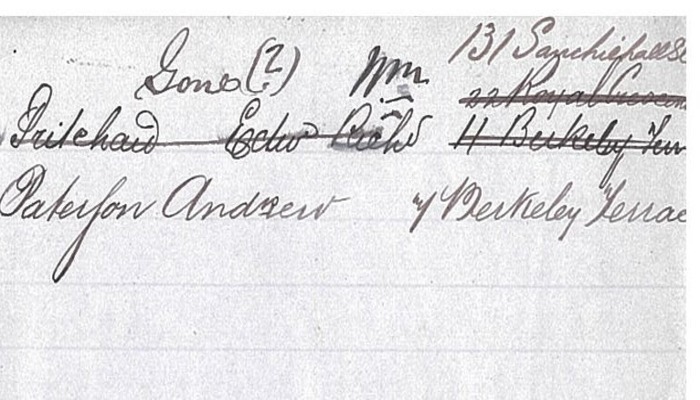 131 Sauchiehall St
Gone (?) Wm.
22 Royal Crescen
Pritchard Edw Richd 11 Berkeley Terr
Paterson Andrew 4 Berkeley Terrac